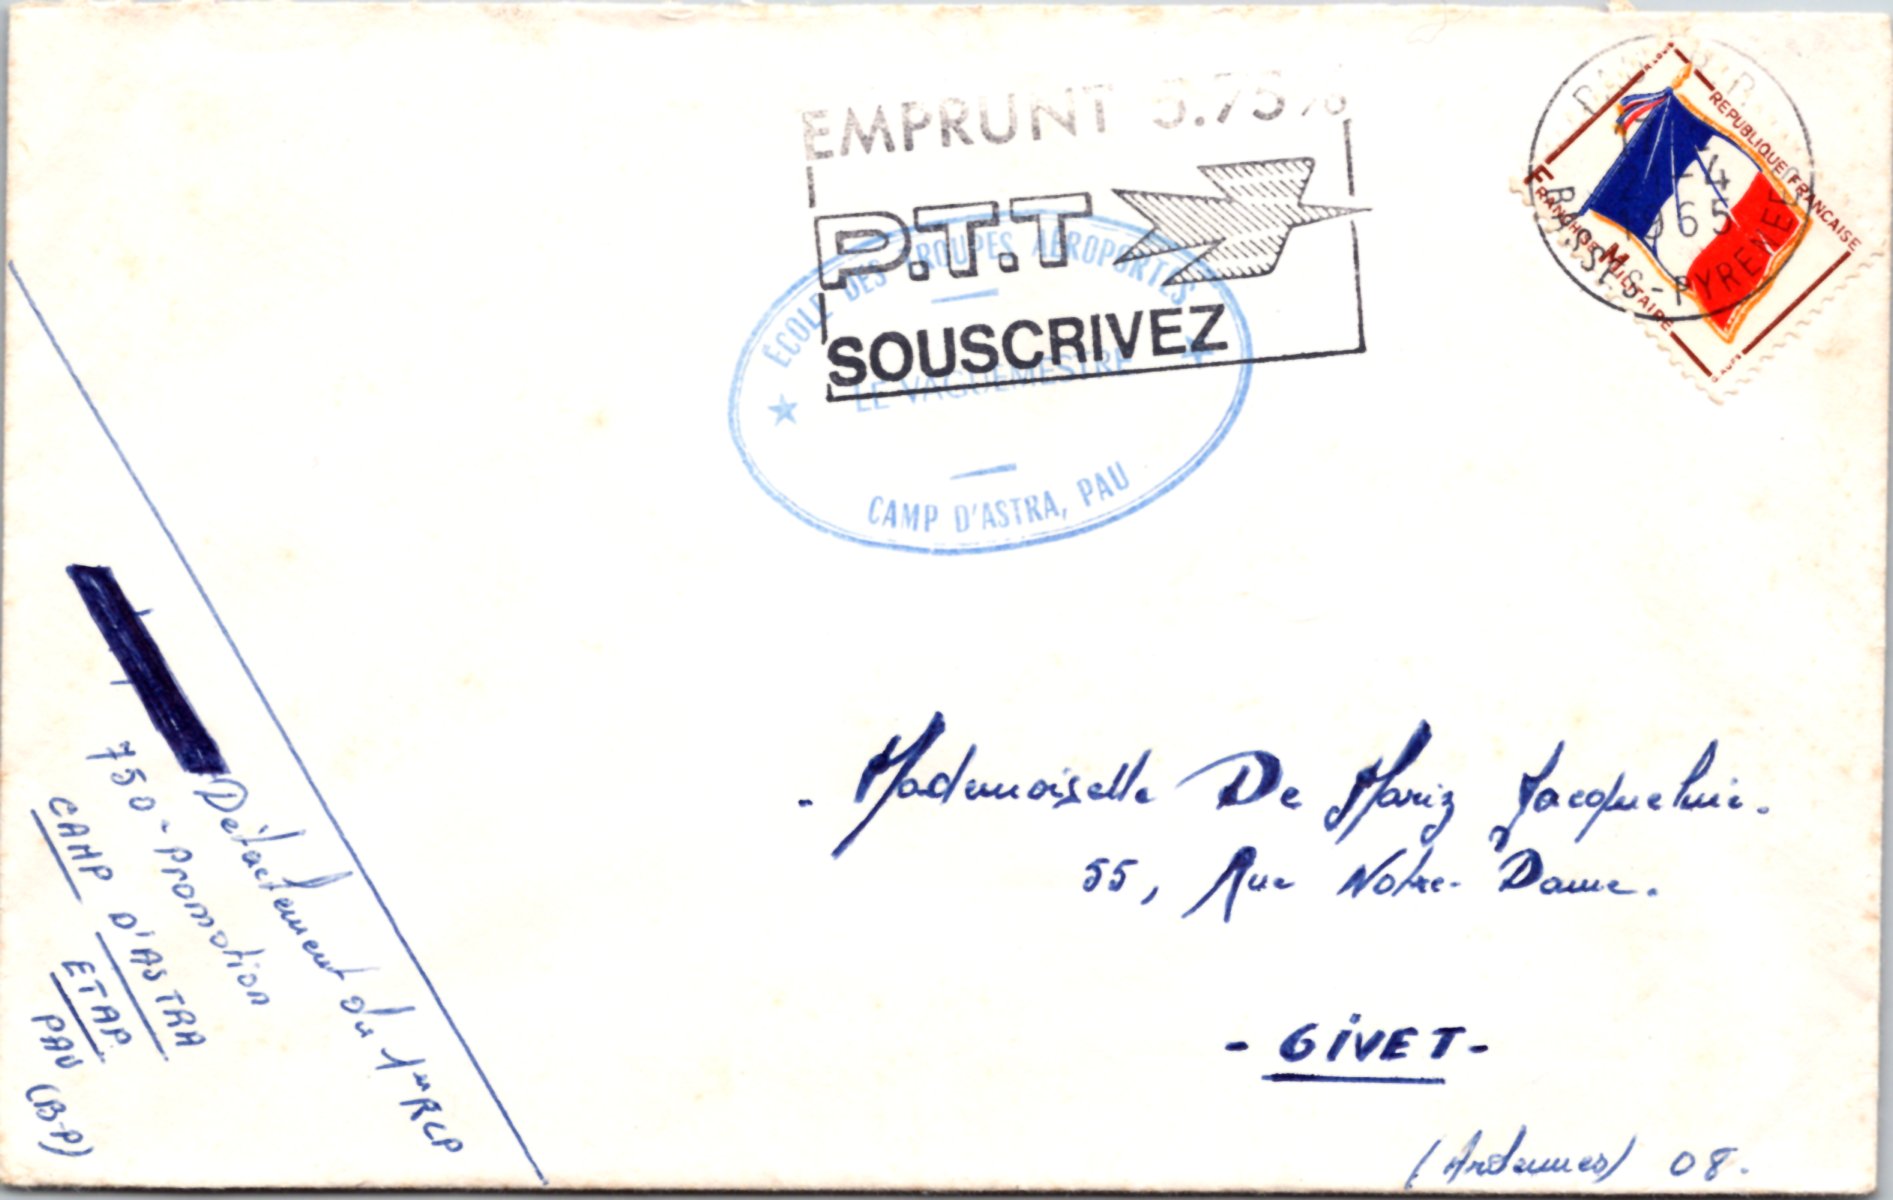 EMPRUNT 5.75%
P.T.T
SOUSCRIVEZ
ÉCOLE DES TROUPES AÉROPORTÉES
LE VAGUEMESTRE
CAMP D'ASTRA, PAU
PAU R.P
-4
1965
BASSES-PYRENEES
REPUBLIQUE FRANCAISE
FRANCHISE MILITAIRE
- Mademoiselle De Mariz Jacqueline.
55, Rue Notre-Dame.
- GIVET -
(Ardennes) 08.
Détachement du 1er RCP
750 - Promotion
CAMP D'ASTRA
ETAP
PAU (B-P)